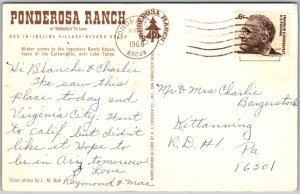 PONDEROSA RANCH
of "BONANZA" TV fame
BOX 10-INCLINE VILLAGE-NEVADA
Winter comes to the legendary Ranch House,
home of the Cartwrights, over Lake Tahoe.
PONDEROSA RANCH
1968
6c
Hi Blanche & Charlie
We saw this
place today and
Virginia City. Went
to Calif. but didn't
like it. Hope to
be in Ariz tomorrow
Love
Raymond & Mae
Color photo by L. M. Buh
Mr & Mrs Charlie
Bargerstock
Kittanning
R.D. #1 Pa
16201